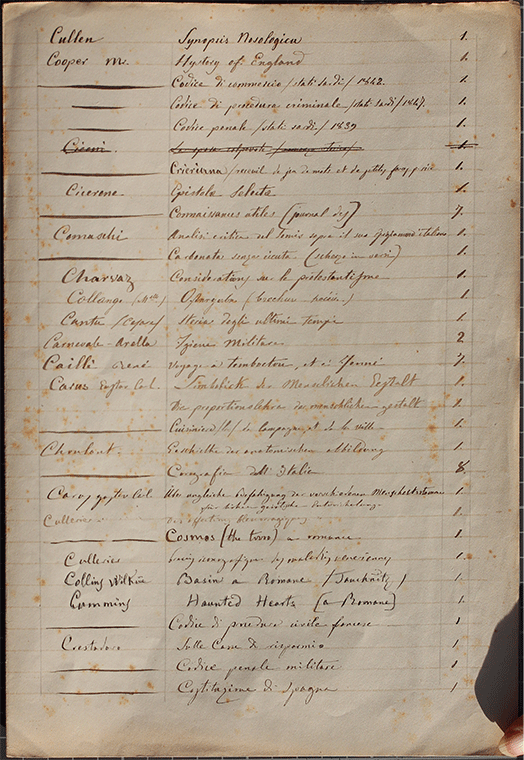 Cullen Synopsis Nosologica 1.
Cooper Mr. Hystery of England 1.
Codice di commercio /stati sardi/ 1842. 1.
Codice di procedura criminale /stati sardi/ 1847. 1.
Codice penale /stati sardi/ 1839 1.
1
Cricriana / recueil de jeu de mots et de petites 1.
Cicerone Epistolæ Selectæ 1.
Connaissances utiles (journal des) 7.
Comaschi Analisi critica del sopra il suo italiano 1.
Carbonata senza (scherzo in versi) 1.
Charvaz Considerations sur le protestantisme 1.
Collange (brochure) 1.
Cantu (Cesare) Storia degli ultimi tempi 1.
Carnevale-Arella Igiene Militare 2
Cailli René Voyage a Tombouctou, et à Jenné
Carus der Menschlichen Gestalt 1.
Die proportionslehre der menschlichen gestalt 1.
Cuisinier /le/ de la campagne et de la ville 1.
Choulant Geschichte der anatomischen abbildung 1.
Corografia dell' Italia 8.
Carus Uber ungleiche der verschiedenen 1.
Culleries 1.
Cosmos (the two) a romance 1.
Culleries des maladies veneriennes 1.
Collins Wilkie Basin a Romane (Tauchnitz) 1.
Cummins Haunted Hearts (a Romane) 1.
Codice di procedura civile francese 1.
Sulle Casse di risparmio 1.
Codice penale militare 1.
Costituzione di Spagna 1